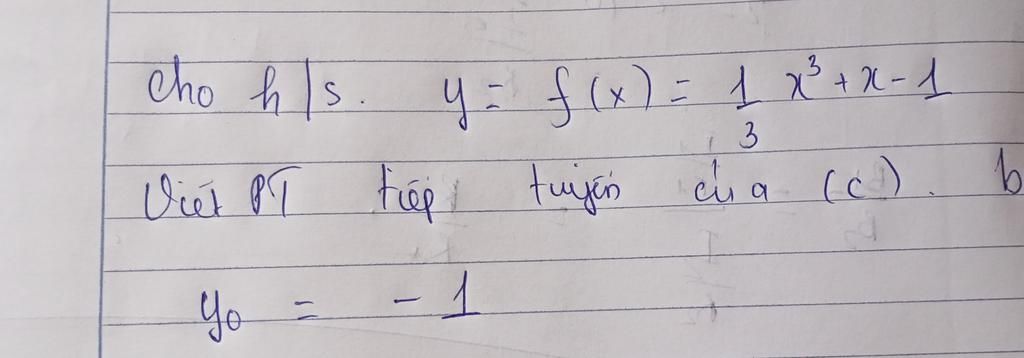 Cho h/s. y = f(x) = 1/3 x³ + x - 1
Viết PT tiếp tuyến của (c). b
y₀ = - 1